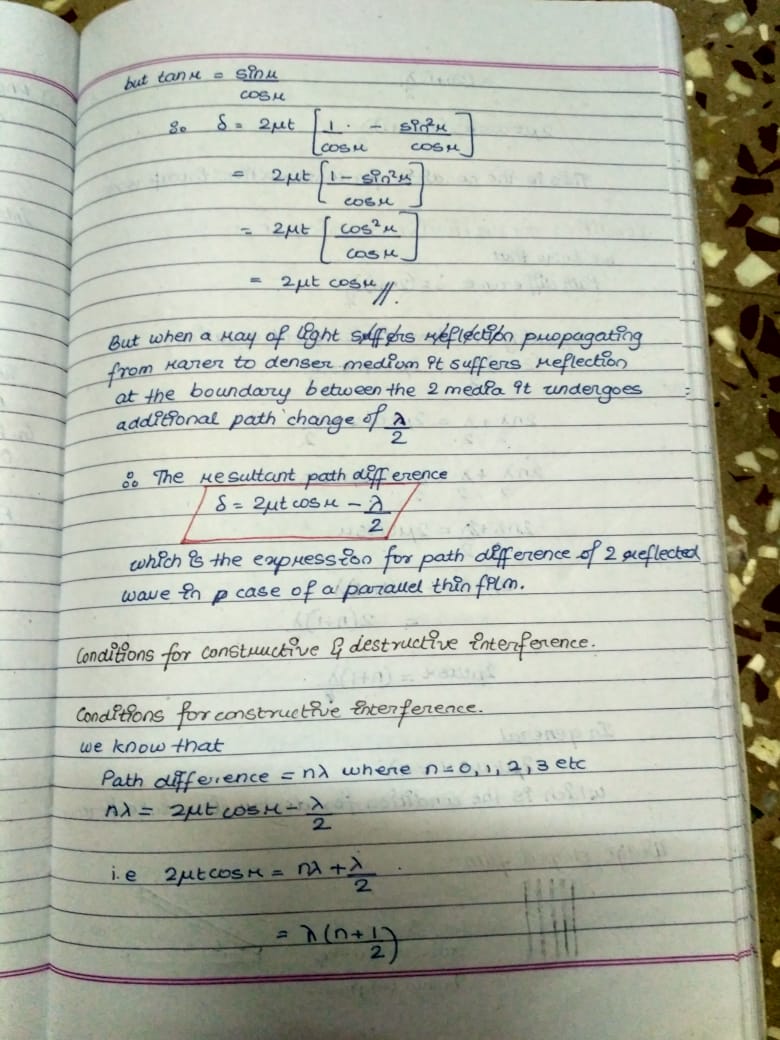 but tan r = sin r / cos r
So δ = 2μt [ 1 / cos r - sin²r / cos r ]
= 2μt [ 1 - sin²r / cos r ]
= 2μt [ cos²r / cos r ]
= 2μt cos r //.
But when a ray of light suffers reflection propagating
from rarer to denser medium it suffers reflection
at the boundary between the 2 media it undergoes
additional path change of λ/2
∴ The resultant path difference
δ = 2μt cos r - λ/2
which is the expression for path difference of 2 reflected
wave in case of a parallel thin film.
Conditions for constructive & destructive interference.
Conditions for constructive interference.
we know that
Path difference = nλ where n=0,1,2,3 etc
nλ = 2μt cos r - λ/2
i.e 2μt cos r = nλ + λ/2
= λ(n+1/2)